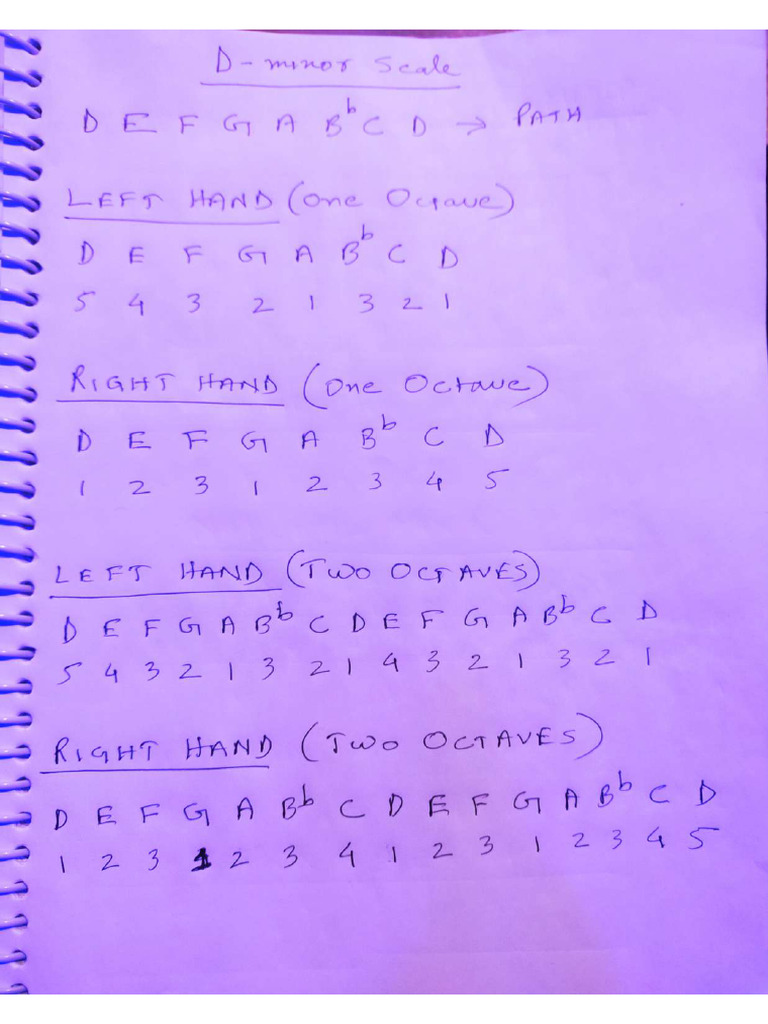 D - minor Scale
D E F G A B♭ C D → PATH
LEFT HAND (One Octave)
D E F G A B♭ C D
5 4 3 2 1 3 2 1
RIGHT HAND (One Octave)
D E F G A B♭ C D
1 2 3 1 2 3 4 5
LEFT HAND (TWO OCTAVES)
D E F G A B♭ C D E F G A B♭ C D
5 4 3 2 1 3 2 1 4 3 2 1 3 2 1
RIGHT HAND (TWO OCTAVES)
D E F G A B♭ C D E F G A B♭ C D
1 2 3 1 2 3 4 1 2 3 1 2 3 4 5